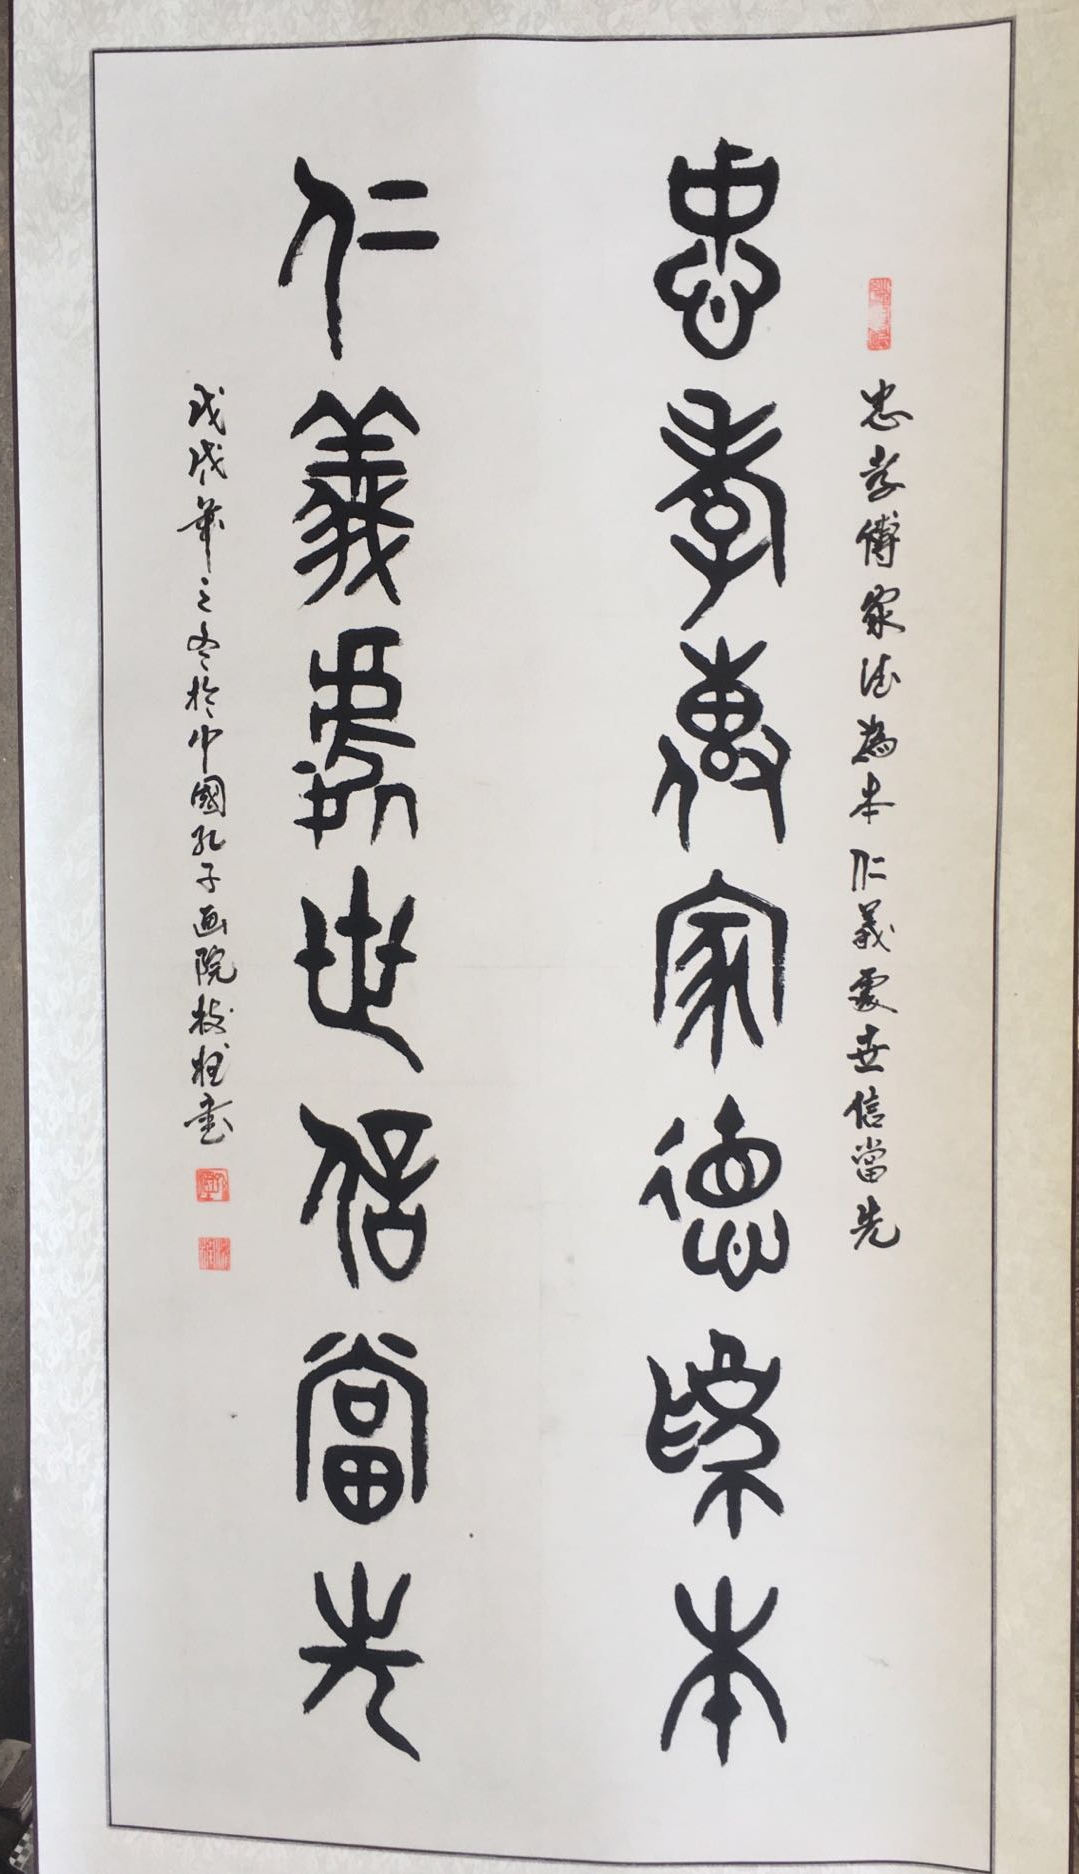 忠孝傳家德為本仁義處世信當先
忠孝傳家德為本
仁義處世信當先
戊戌年之冬於中國孔子画院書